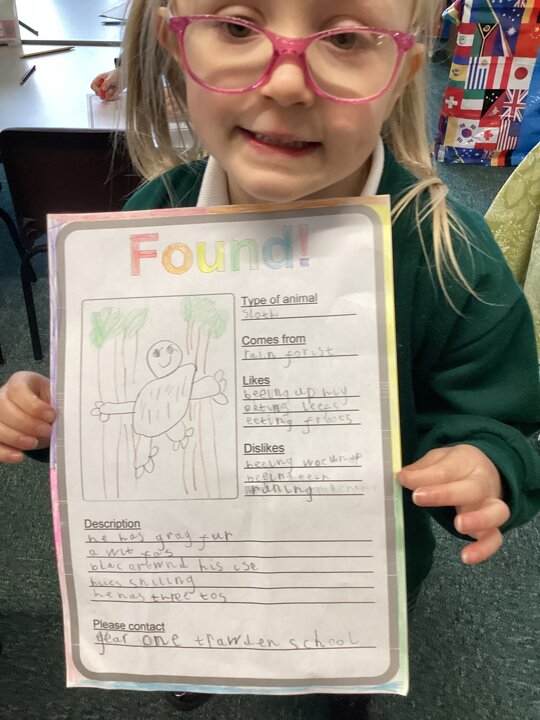 Found!
Type of animal
sloth
Comes from
rain forist
Likes
beeing up hiy
eeting leefs
eeting froots
Dislikes
beeing wocun up
beeing eetn
Description
he has gray fur
a wit fas
blac arownd his ise
hees smiling
he has three tos
Please contact
year one trawden school